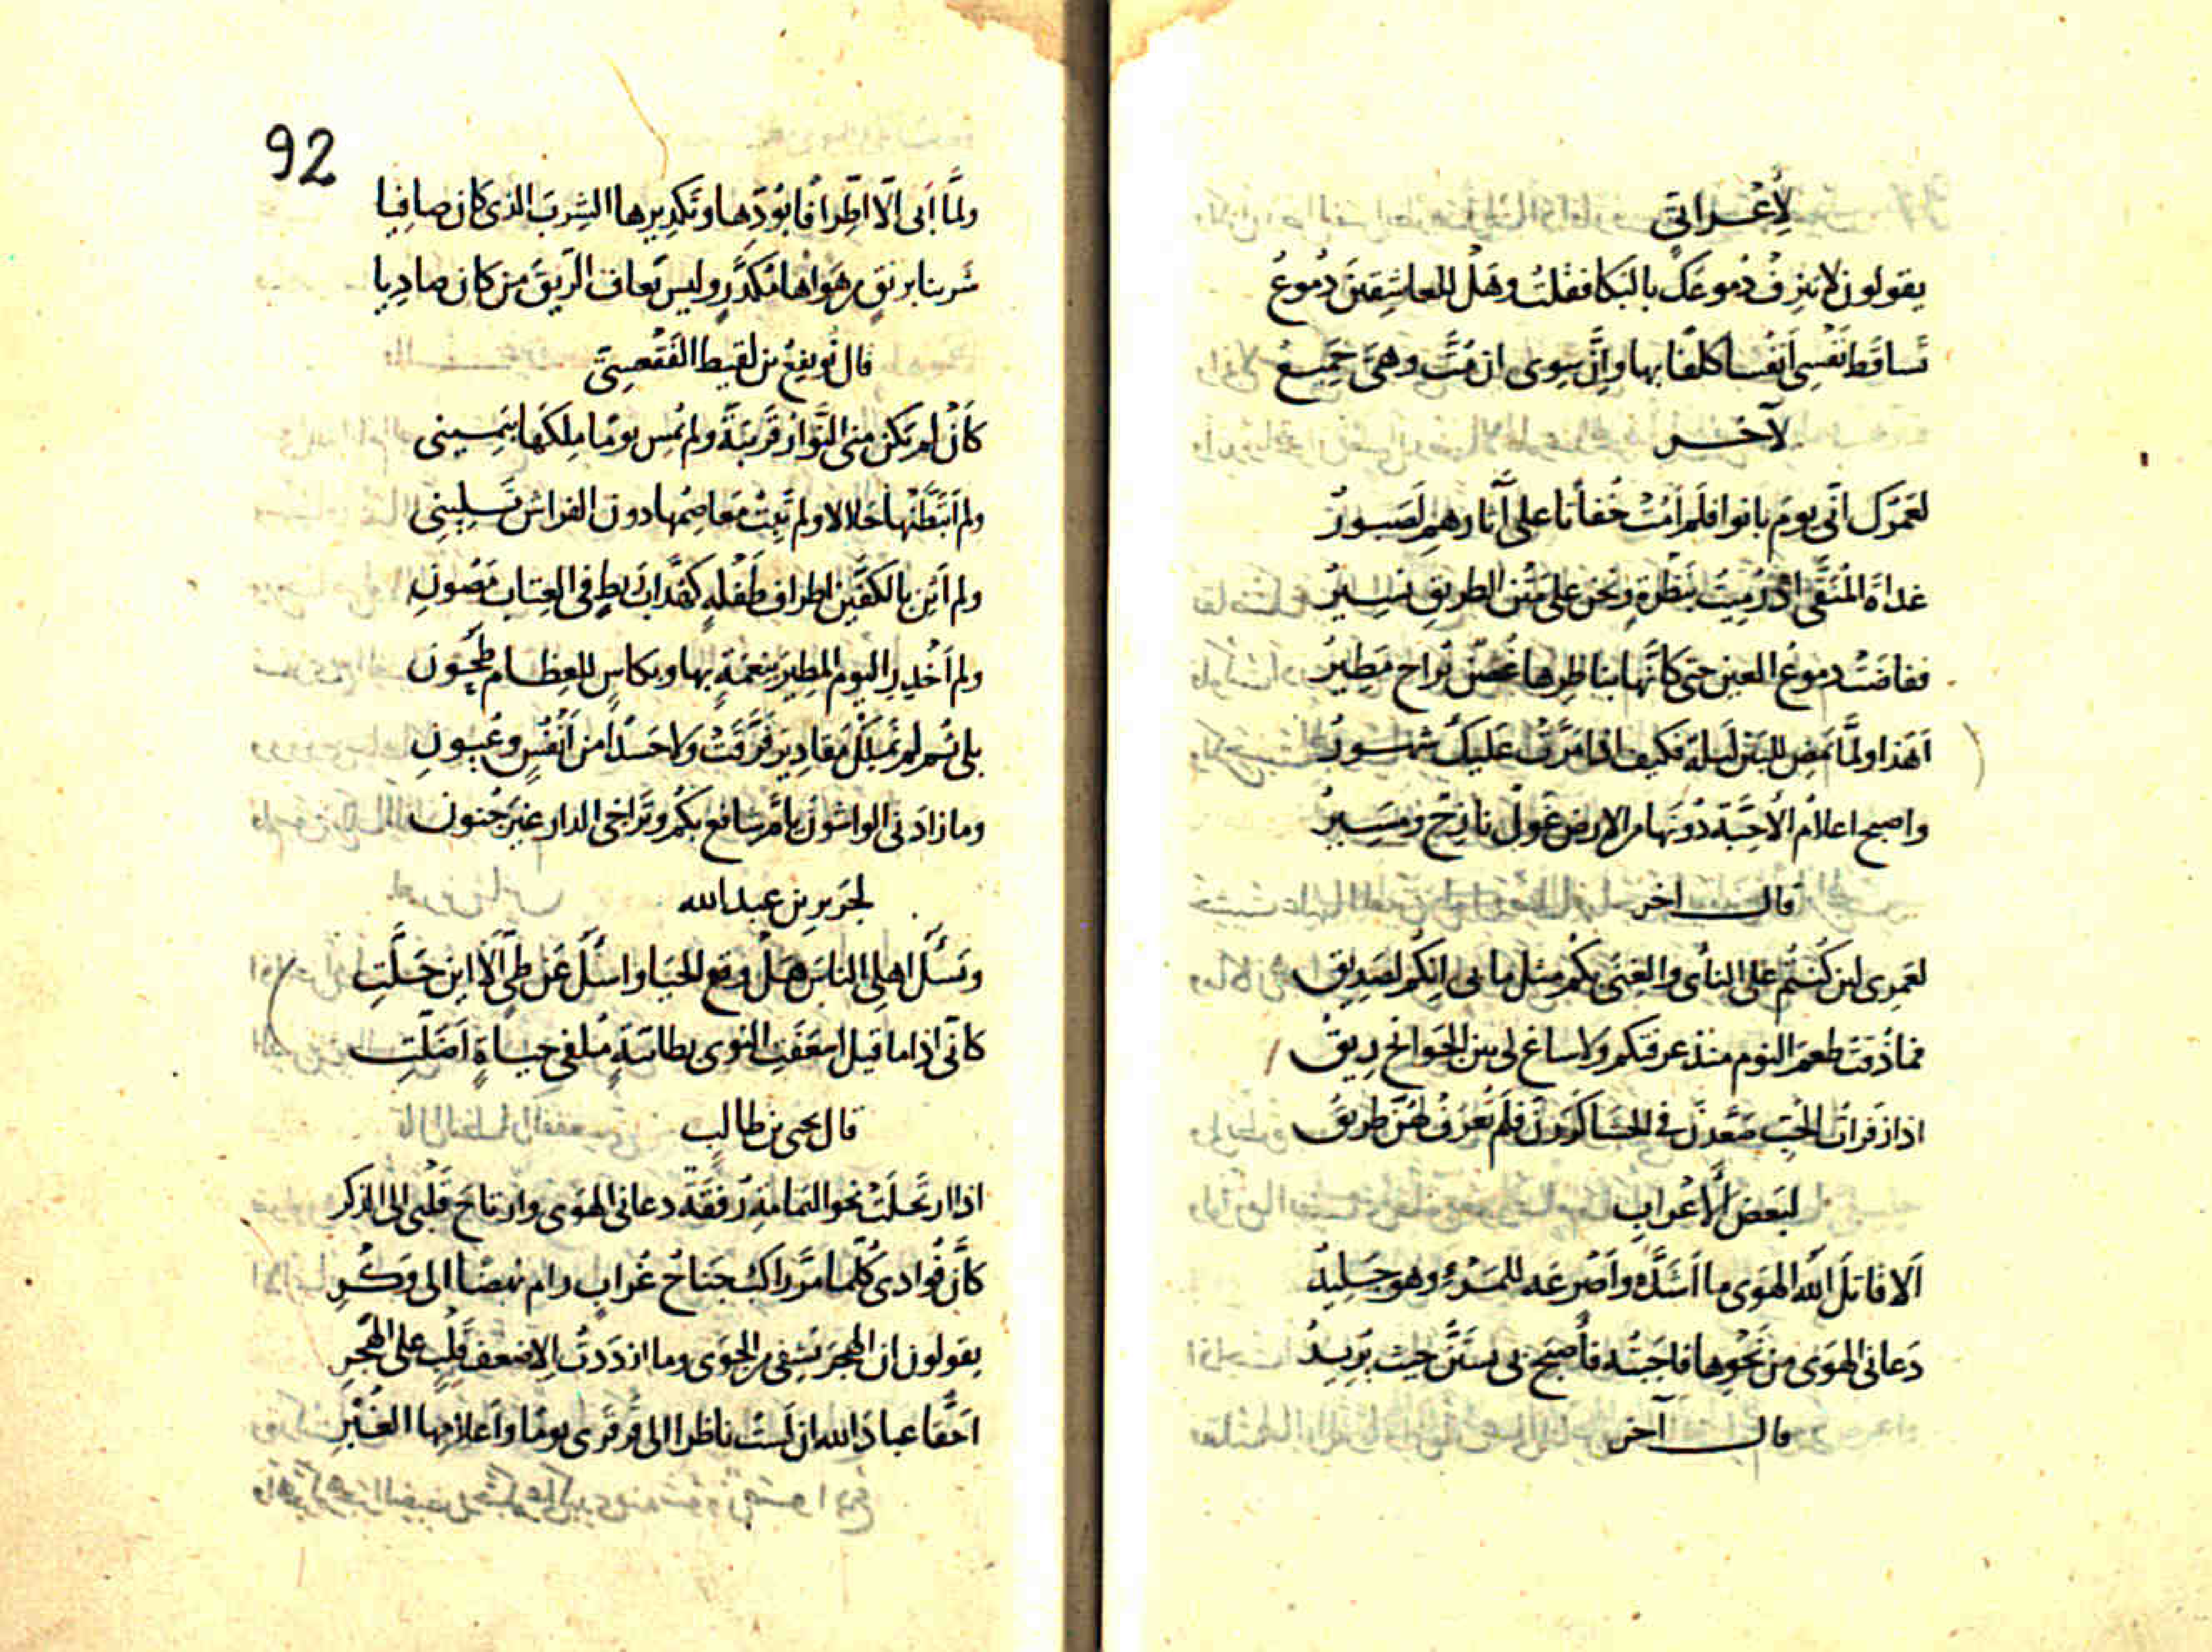 لأعرابيّ
يقولون لا تنزف دموعك بالبكا فقلت وهل للعاشقين دموع
تساقط نفسي أنفسا كلفا بها وإنّ سوى ان متّ وهي جميع
لآخر
لعمرك انّي يوم بانوا فلم أمت خفاتا على آثارهم لصبور
غداة المنقّى اذ رميت بنظرة ونحن على متن الطريق نسير
ففاضت دموع العين حتى كأنّها بناظرها غصن يراح مطير
أهذا ولمّا تمض للبين ليلة فكيف اذا مرّت عليك شهور
واصبح اعلام الأحبّة دونها من الارض غول نازح ومسير
قال اخر
لعمري لئن كنتم على النأي والغنى بكم مثل ما بي انكم لصديق
فما ذقت طعم النوم منذ عرفتكم ولا ساغ لي بين الجوانح ريق
اذا زفرات الحبّ صعّدن في الحشا كررن فلم تعرف لهنّ طريق
لبعض الأعراب
ألا قاتل الله الهوى ما أشدّه وأصرعه للمرء وهو جليد
دعاني الهوى من نحوها فاجبته فأصبح بي يستنّ حيث يريد
قال آخر
92
ولمّا أبى الّا اطّرافا بودّها وتكديرها الشرب الذي كان صافيا
شربنا برنق من هواها مكدّر وليس يعاف الرّيق من كان صاديا
قال نويفع بن لقيط الفقعسيّ
كأن لم تكن منى النّوار قريبة ولم تمس يوما ملكها بيميني
ولم أتبطّنها حلالا ولم تبت معاصمها دون الفراش تليني
ولم أثن بالكفّين اطراف طفلة كهدّاب ريط في العياب مصون
ولم أخل في اليوم المطير بنعمة بها وبكاس للعظام طحون
بلى ثم لم نملك مقادير فرّقت ولا حسدا من أنفس وعيون
وما زادني الواشون يا أمّ شافع بكم وتراخي الدار غير جنون
لجرير بن عبد الله
وتسأل اهلي الناس هل وقع الحيا واسأل عن طيّ ألا اين حلّت
كأنّي اذا ما قيل اسعفت النوى بطائية ملقى حياة اضلّت
قال يحيى بن طالب
اذا ارتحلت نحو اليمامة رفقة دعاني الهوى وارتاح قلبي الى الذكر
كأنّ فؤادي كلّما مرّ راكب جناح غراب رام نهضا الى وكر
يقولون ان الهجر يشفي من الجوى وما ازددت الا ضعف قلب على الهجر
احقّا عباد الله ان لست ناظرا الى قرقرى يوما وأعلامها الغبر